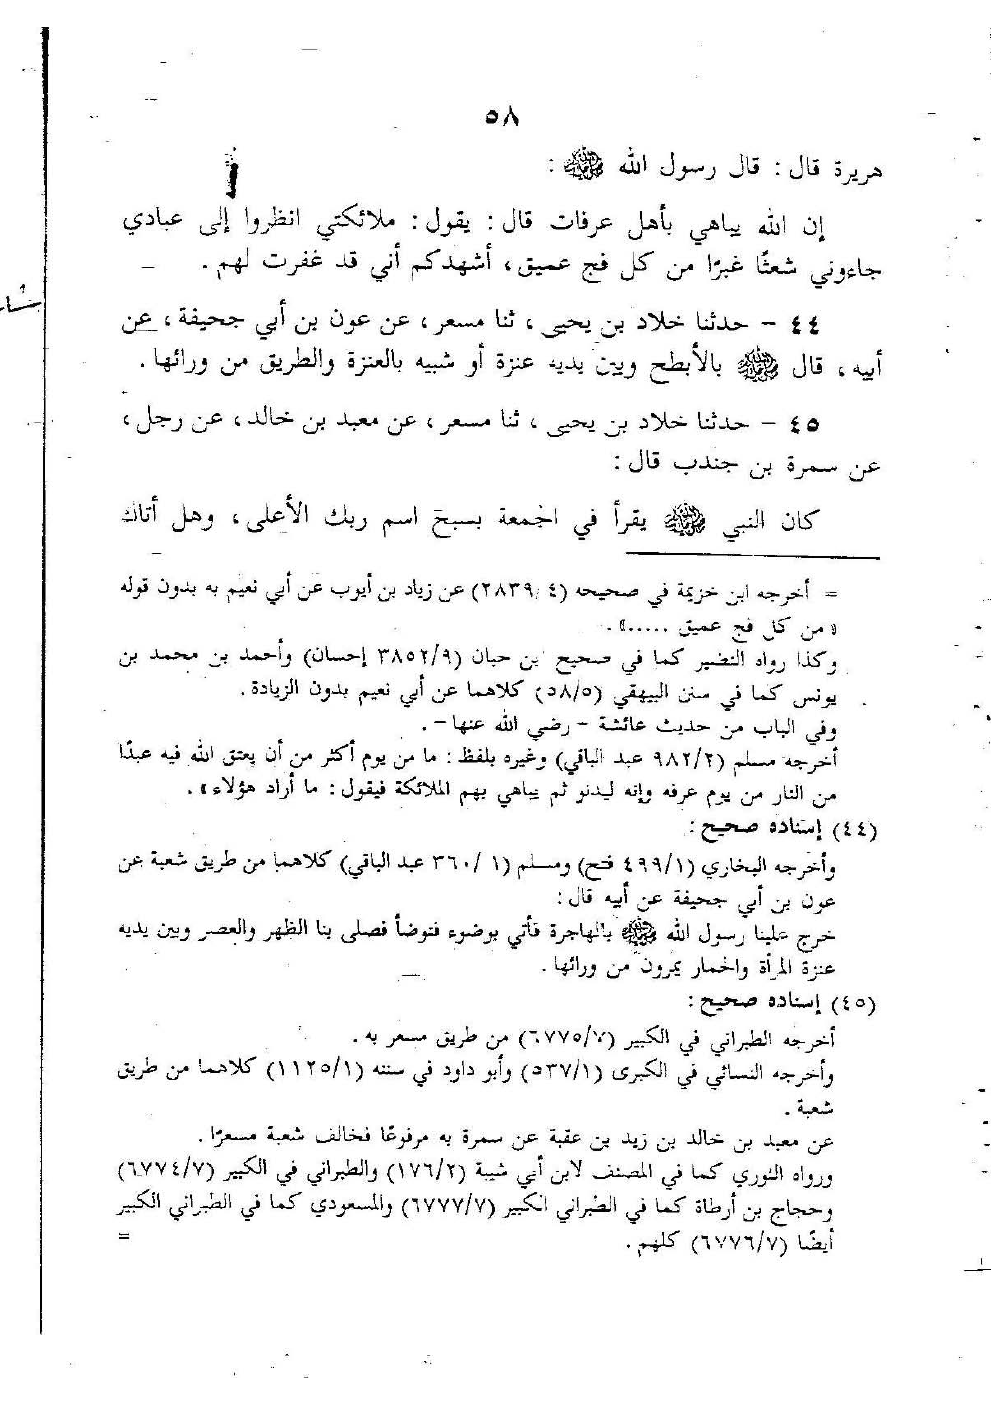 ٥٨
هريرة قال : قال رسول الله ﷺ :
إن الله يباهي بأهل عرفات قال : يقول : ملائكتي انظروا إلى عبادي
جاءوني شعثًا غبرًا من كل فج عميق، أشهدكم أني قد غفرت لهم .
٤٤ - حدثنا خلاد بن يحيى ، ثنا مسعر، عن عون بن أبي جحيفة، عن
أبيه، قال ﷺ بالأبطح وبين يديه عنزة أو شبيه بالعنزة والطريق من ورائها .
٤٥ - حدثنا خلاد بن يحيى ، ثنا مسعر، عن معبد بن خالد، عن رجل،
عن سمرة بن جندب قال :
كان النبي ﷺ يقرأ في الجمعة بسبح اسم ربك الأعلى، وهل أتاك
= أخرجه ابن خزيمة في صحيحه (٢٨٣٩/٤) عن زياد بن أيوب عن أبي نعيم به بدون قوله
« من كل فج عميق .....» .
وكذا رواه النضير كما في صحيح بن حبان (٣٨٥٢/٩ إحسان) وأحمد بن محمد بن
يونس كما في سنن البيهقي (٥٨/٥) كلاهما عن أبي نعيم بدون الزيادة .
وفي الباب من حديث عائشة - رضي الله عنها -.
أخرجه مسلم (٩٨٢/٢ عبد الباقي) وغيره بلفظ : ما من يوم أكثر من أن يعتق الله فيه عبدًا
من النار من يوم عرفه وإنه ليدنو ثم يباهي بهم الملائكة فيقول : ما أراد هؤلاء» .
(٤٤) إسناده صحيح :
وأخرجه البخاري (٤٩٩/١ فتح) ومسلم (٣٦٠/١ عبد الباقي) كلاهما من طريق شعبة عن
عون بن أبي جحيفة عن أبيه قال :
خرج علينا رسول الله ﷺ بالهاجرة فأتي بوضوء فتوضأ فصلى بنا الظهر والعصر وبين يديه
عنزة المرأة والحمار يمرون من ورائها .
(٤٥) إسناده صحيح :
أخرجه الطبراني في الكبير (٦٧٧٥/٧) من طريق مسعر به .
وأخرجه النسائي في الكبرى (٥٣٧/١) وأبو داود في سننه (١١٢٥/١) كلاهما من طريق
شعبة .
عن معبد بن خالد بن زيد بن عقبة عن سمرة به مرفوعًا فخالف شعبة مسعرًا .
ورواه الثوري كما في المصنف لابن أبي شيبة (١٧٦/٢) والطبراني في الكبير (٦٧٧٤/٧)
وحجاج بن أرطاة كما في الطبراني الكبير (٦٧٧٧/٧) والمسعودي كما في الطبراني الكبير
أيضًا (٦٧٧٦/٧) كلهم .
=